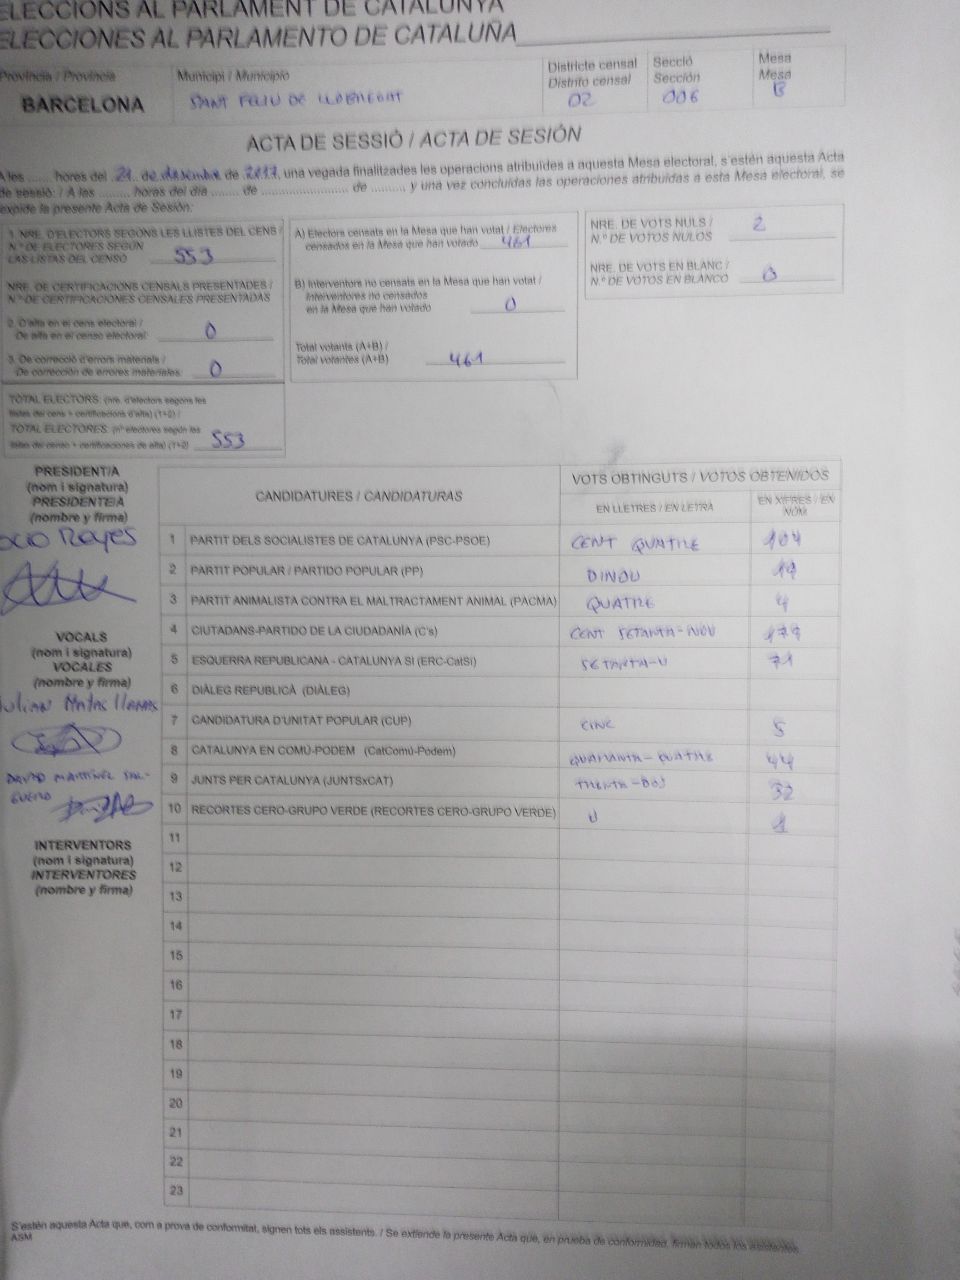 ELECCIONS AL PARLAMENT DE CATALUNYA
ELECCIONES AL PARLAMENTO DE CATALUÑA
Província / Provincia
BARCELONA
Municipi / Municipio
SANT FELIU DE LLOBREGAT
Districte censal
Distrito censal
02
Secció
Sección
006
Mesa
Mesa
B
ACTA DE SESSIÓ / ACTA DE SESIÓN
A les ...... hores del 21 de desembre de 2017, una vegada finalitzades les operacions atribuïdes a aquesta Mesa electoral, s'estén aquesta Acta
de sessió: / A las ........ horas del día ....... de ........................ de ......... y una vez concluidas las operaciones atribuidas a esta Mesa electoral, se
expide la presente Acta de Sesión:
1. NRE. D'ELECTORS SEGONS LES LLISTES DEL CENS /
N.º DE ELECTORES SEGÚN
LAS LISTAS DEL CENSO 553
NRE. DE CERTIFICACIONS CENSALS PRESENTADES /
N.º DE CERTIFICACIONES CENSALES PRESENTADAS
2. D'alta en el cens electoral /
De alta en el censo electoral: 0
3. De correcció d'errors materials /
De corrección de errores materiales: 0
TOTAL ELECTORS: (nre. d'electors segons les
llistes del cens + certificacions d'alta) (1+2) /
TOTAL ELECTORES: (nº electores según las
listas del censo + certificaciones de alta) (1+2) 553
A) Electors censats en la Mesa que han votat / Electores
censados en la Mesa que han votado 461
B) Interventors no censats en la Mesa que han votat /
Interventores no censados
en la Mesa que han votado 0
Total votants (A+B) /
Total votantes (A+B) 461
NRE. DE VOTS NULS /
N.º DE VOTOS NULOS 2
NRE. DE VOTS EN BLANC /
N.º DE VOTOS EN BLANCO 0
PRESIDENT/A
(nom i signatura)
PRESIDENTE/A
(nombre y firma)
ocio Reyes
VOCALS
(nom i signatura)
VOCALES
(nombre y firma)
Julian Matas Llamas
DAVID MARTÍNEZ SAL-
GUERO
INTERVENTORS
(nom i signatura)
INTERVENTORES
(nombre y firma)
CANDIDATURES / CANDIDATURAS
VOTS OBTINGUTS / VOTOS OBTENIDOS
EN LLETRES / EN LETRA
EN XIFRES / EN
NÚM
1 PARTIT DELS SOCIALISTES DE CATALUNYA (PSC-PSOE) CENT QUATRE 104
2 PARTIT POPULAR / PARTIDO POPULAR (PP) DINOU 19
3 PARTIT ANIMALISTA CONTRA EL MALTRACTAMENT ANIMAL (PACMA) QUATRE 4
4 CIUTADANS-PARTIDO DE LA CIUDADANÍA (C's) CENT SETANTA-NOU 179
5 ESQUERRA REPUBLICANA - CATALUNYA SÍ (ERC-CatSí) SETANTA-U 71
6 DIÀLEG REPUBLICÀ (DIÀLEG)
7 CANDIDATURA D'UNITAT POPULAR (CUP) CINC 5
8 CATALUNYA EN COMÚ-PODEM (CatComú-Podem) QUARANTA-QUATRE 44
9 JUNTS PER CATALUNYA (JUNTSxCAT) TRENTA-DOS 32
10 RECORTES CERO-GRUPO VERDE (RECORTES CERO-GRUPO VERDE) U 1
11
12
13
14
15
16
17
18
19
20
21
22
23
S'estén aquesta Acta que, com a prova de conformitat, signen tots els assistents. / Se extiende la presente Acta que, en prueba de conformidad, firman todos los asistentes.
ASM